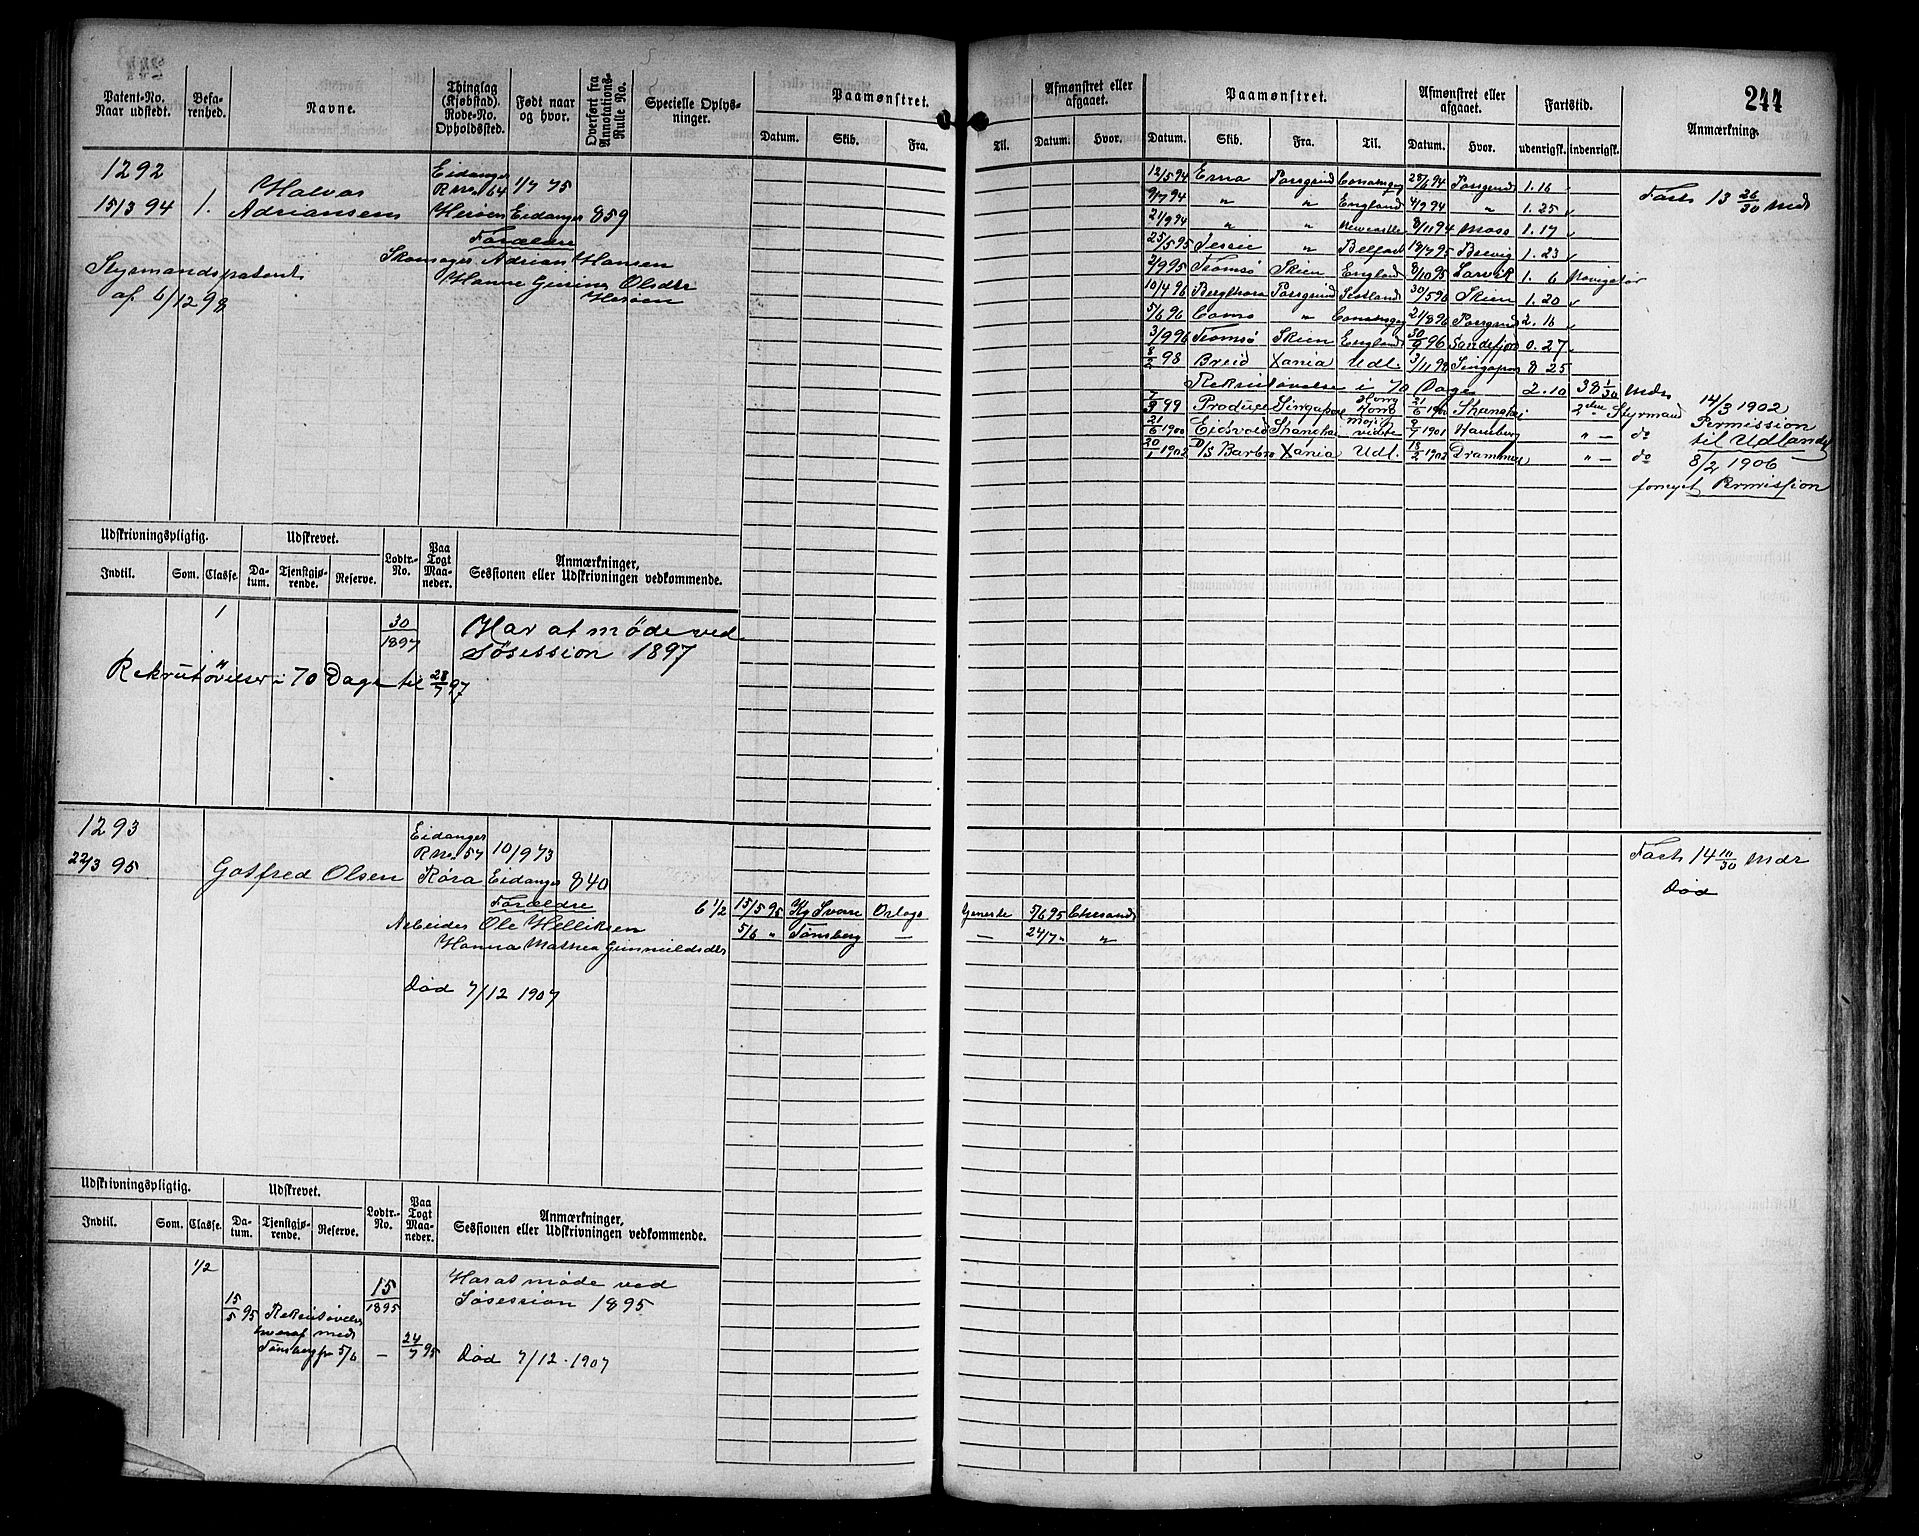 244
Patent-No. Naar udstedt. Befarenhed. Navne. Thinglag (Kjøbstad). Rode-No. Opholdssted. Født naar og hvor. Overført fra Annotations-Rulle No. Specielle Oplysninger. Paamønstret. Datum. Skib. Fra.
Til. Afmønstret eller afgaaet. Datum. Hvor. Paamønstret. Datum. Skib. Fra. Til. Afmønstret eller afgaaet. Datum. Hvor. Fartstid. udenrigsk. indenrigsk. Anmærkning.
1292
15/3 94 1. Halvar Adriansen
Eidanger R no 64 1/7 75
Herøen Eidanger 859
Forældre
Skomager Adrian Hansen
Hanne Olsdtr
Herøen
Styrmandspatent
af 6/12 98
12/5 94 Erna Porsgrund 28/6 94 Porsgrund 1.16
9/7 94 " " England 4/9 94 " 1.25
21/9 94 " " Newcastle 8/11 94 Moss 1.17
25/5 95 Jessie " Belfast 19/7 95 Brevig 1.23
2/9 95 Tromsø Skien England 8/10 95 Larvik 1. 6
10/4 96 Porsgrund 30/5 96 Skien 1.20
5/6 96 " 21/8 96 Porsgrund 2.16
3/9 96 Tromsø Skien England 30/9 96 Sandefjord 0.27
8/2 98 Breid Xania Udl. 3/11 98 Singapore 8 25
Rekrutøvelse i 70 Dage 2.10 38 1/30 Mdr
99 Produce Singapore Hong Kong 21/6 1900 Shanghai 2den Styrmand
21/6 1900 Eidsvold Shanghai 1901 Hamburg " — do
20/1 1902 D/S Barbro Xania Udl. 18/2 1902 Drammen " — do
Farts 13 26/30 Mdr
14/3 1902
Permission
til Udlandet
8/2 1906
fornyet Permission
Udskrivningspligtig. Udskrevet. Lodtr.-No. Paa Togt Maaneder. Anmærkninger, Sessionen eller Udskrivningen vedkommende.
Indtil. Som. Classe. Datum. Tjenstgjørende. Reserve.
1 30/1897 Har at møde ved
Søsession 1897
Rekrutøvelser i 70 Dage til 28/7 97
1293
22/3 95 Gotfred Olsen
Eidanger R no. 57 10/9 73
Røra Eidanger 840
Forældre
Arbeider Ole Helliksen
Hanna Mathea Gunnuldsdtr
Død 7/12 1907
6 1/2 15/5 95 Kg Sverre Orlogs Geneste 5/6 95 Chrsand
5/6 " Tønsberg — — 24/7 " "
Farts 14 10/30 Mdr
Død
Udskrivningspligtig. Udskrevet. Lodtr.-No. Paa Togt Maaneder. Anmærkninger, Sessionen eller Udskrivningen vedkommende.
Indtil. Som. Classe. Datum. Tjenstgjørende. Reserve.
1/2 15/1895 Har at møde ved
Søsession 1895
15/5 95 Rekrutøvelse
hvoraf med
Tønsberg fra 5/6 — 24/7 95
Død 7/12 - 1907